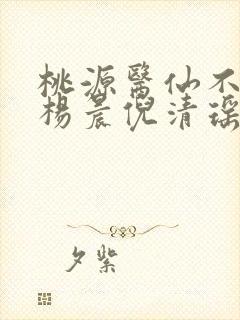 桃源醫仙不
楊晨倪清瑤
夕紫